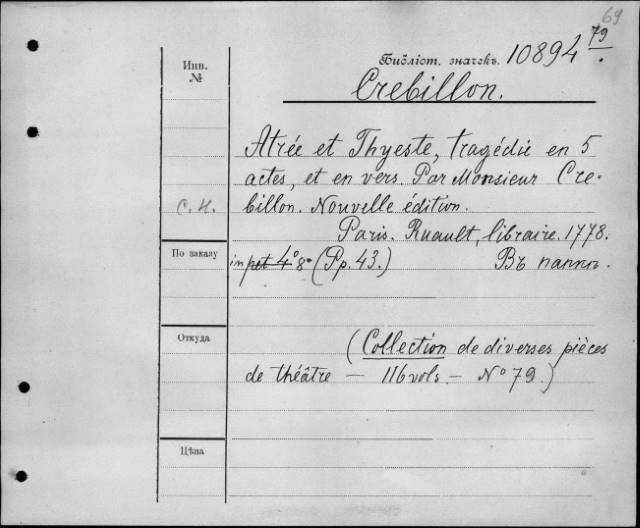 69
Инв. №
Библіот. значекъ. 10894 79.
Crebillon.
Atrée et Thyeste, tragédie en 5
actes, et en vers. Par Monsieur Cre-
С. Н. billon. Nouvelle édition.
Paris. Ruault, libraire. 1778.
По заказу
in pet 4° 8° (Pp. 43.) Въ папкѣ.
Откуда
(Collection de diverses pièces
de théâtre — 116 vols. — N° 79.)
Цѣна